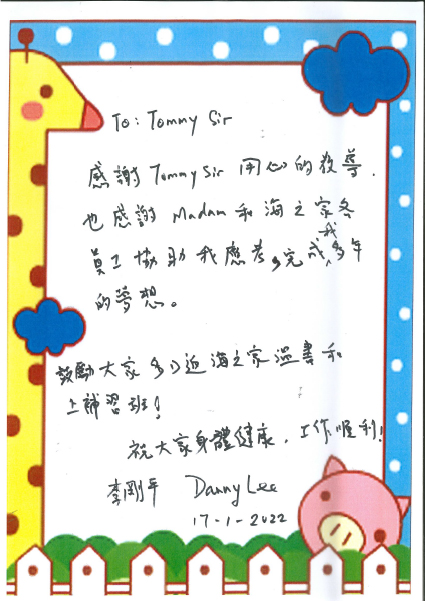 To: Tommy Sir
感謝 Tommy Sir 用心的教導.
也感謝 Madam 和海之家各
員工協助我應考,完成我多年
的夢想。
鼓勵大家多D返海之家溫書和
上補習班!
祝大家身體健康,工作順利!
李剛平 Danny Lee
17-1-2022